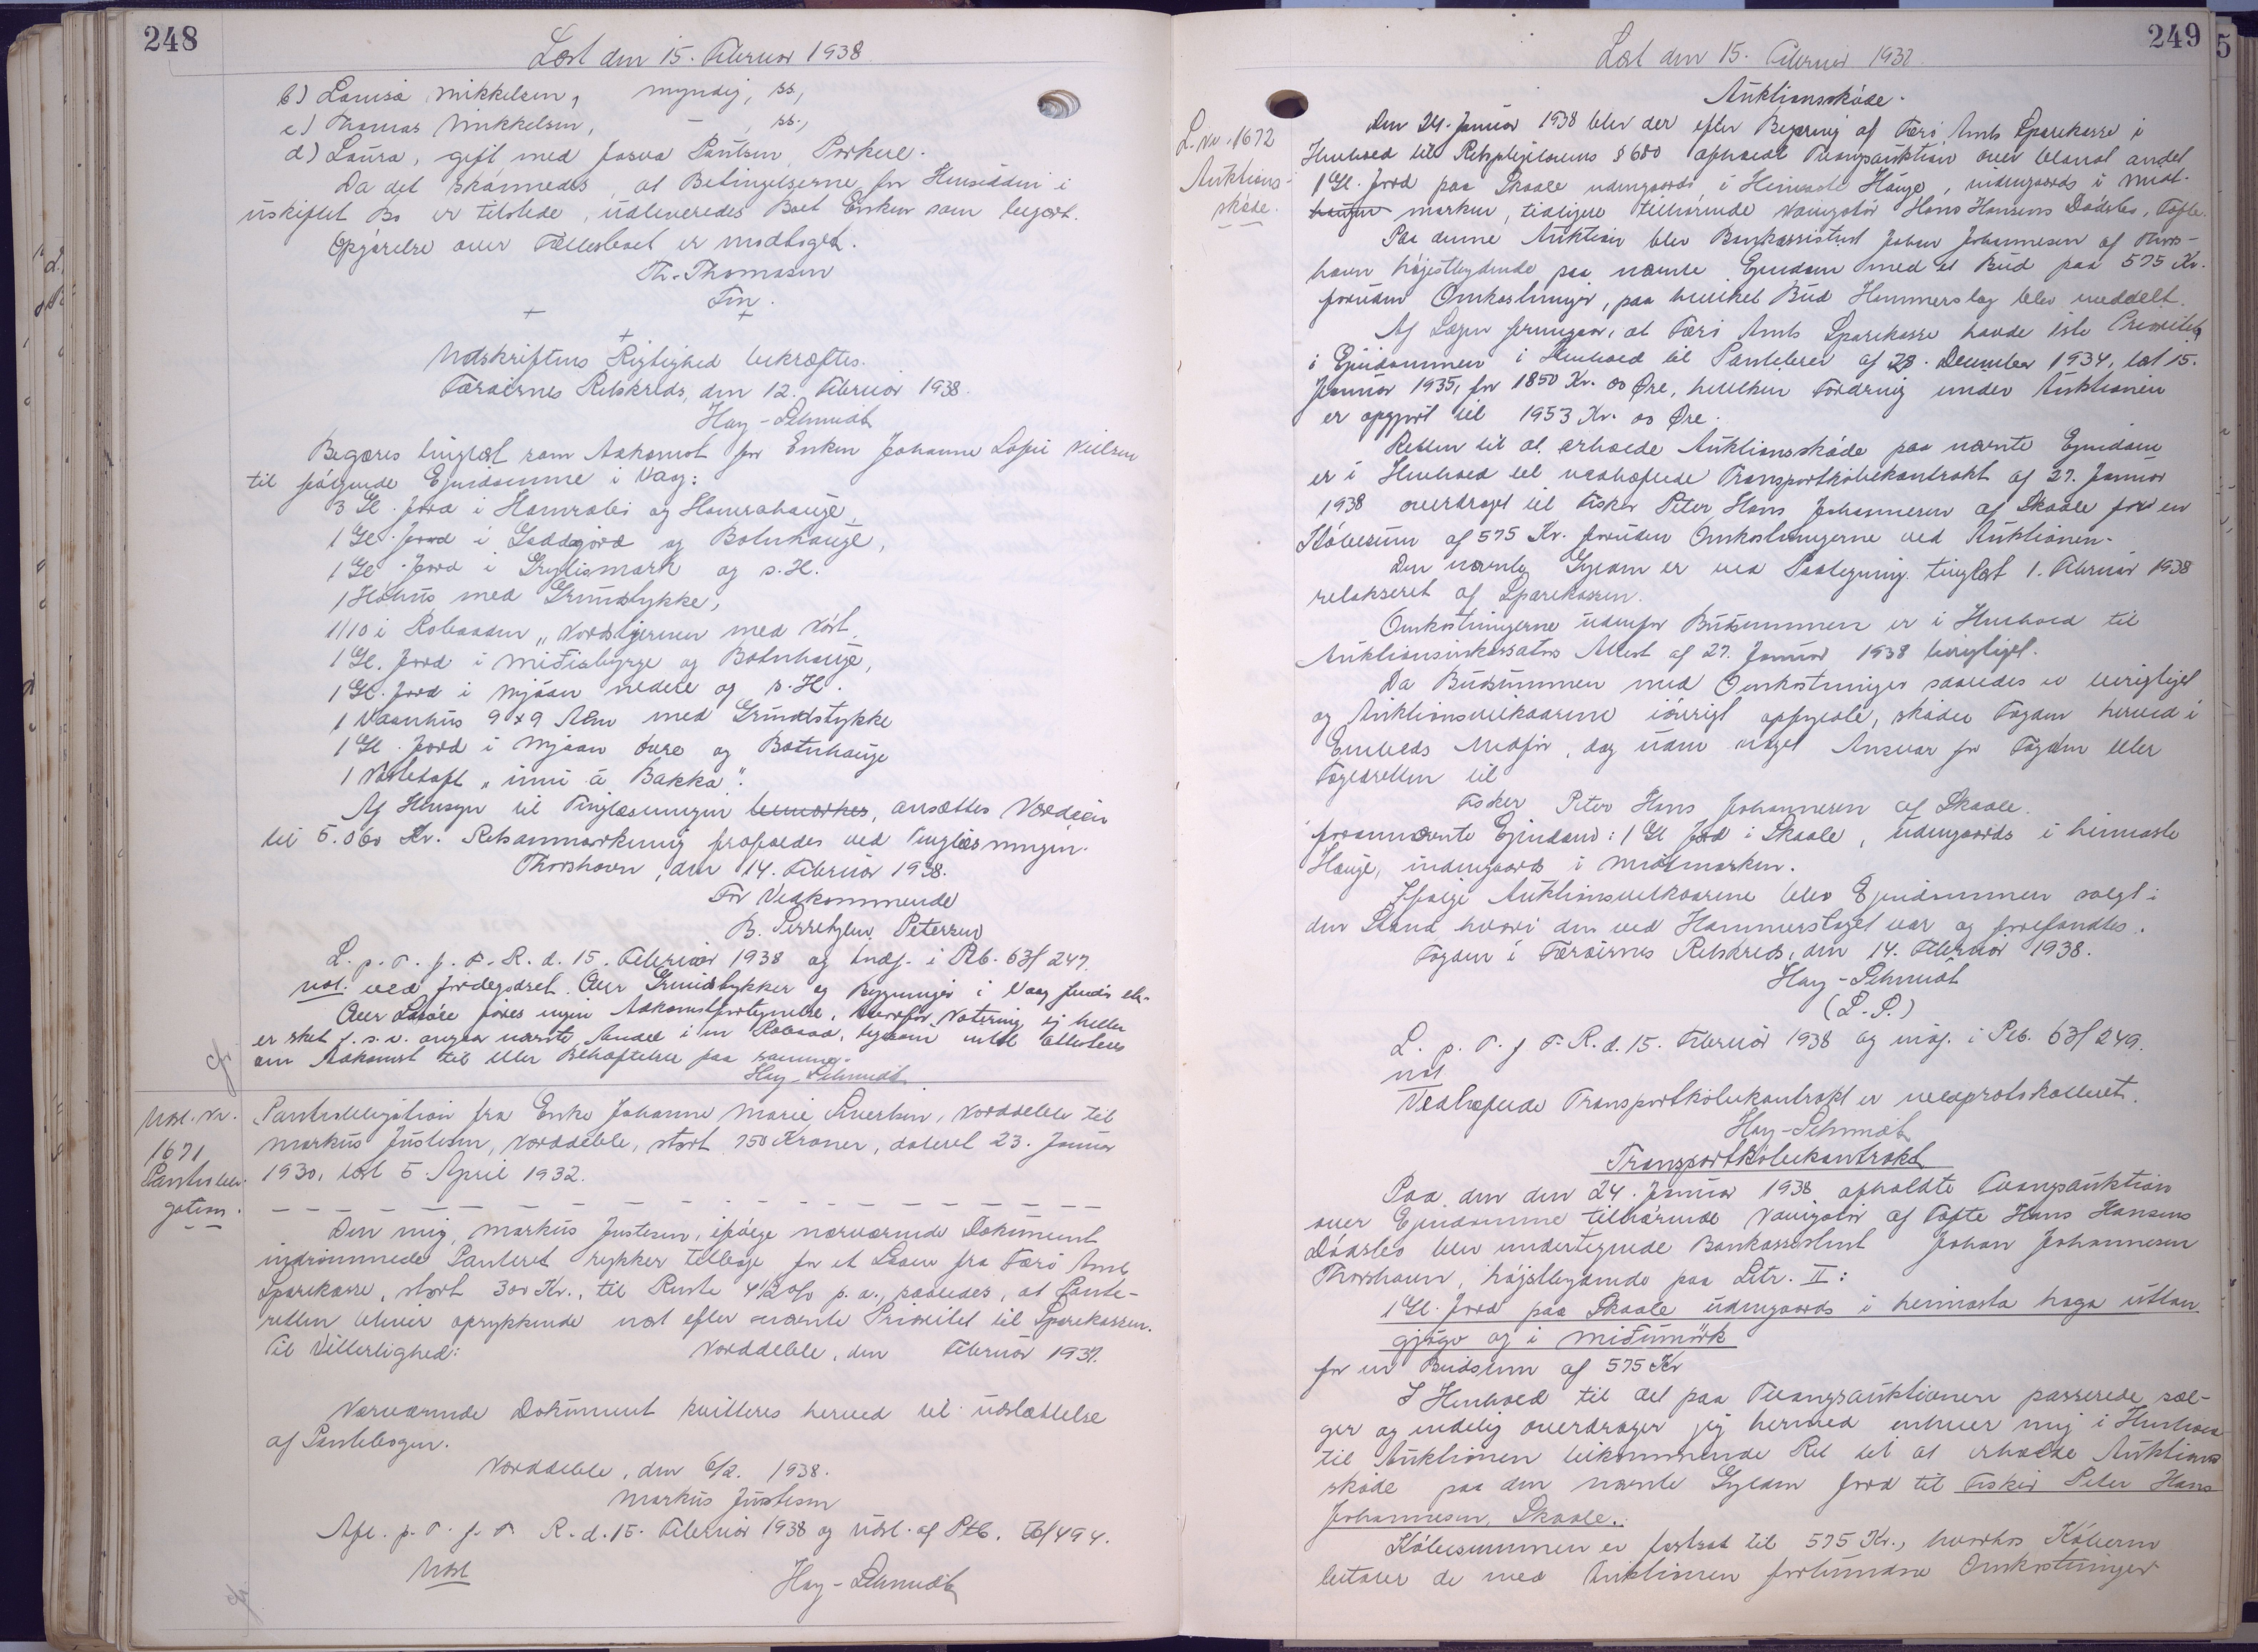 248
Læst den 15. Februar 1938
b) Louisa Mikkelsen, myndig, ss.,
c) Thomas Mikkelsen, — , ss.,
d) Laura, gift med Joen Poulsen, Porkere.
Da det skønnedes, at Betingelserne for Hensidden i
uskiftet Bo er tilstede, udleveredes Boet Enken som begært.
Opgørelse over Fællesboet er modtaget.
Th. Thomasen
Fm.
+ + +
Udskriftens Rigtighed bekræftes.
Færøernes Retskreds, den 12. Februar 1938.
Hay-Schmidt
Begæres tinglæst som Adkomst for Enken Johanne Sofie Nielsen
til følgende Ejendomme i Vaag:
3 Gl. Jord i Hamrabø og Hamrahauge,
1 Gl. Jord i Gaddagørd og Botnhauge,
1 Gl. Jord i Grylismørk og s. H.
1 Høhus med Grundstykke,
1/10 i Robaaden „Nordstjernen med Nøst
1 Gl. Jord i Miðisbyrge og Botnhauge,
1 Gl. Jord i Mjåan nedere og s. H.
1 Vaanhus 9 x 9 Alen med Grundstykke
1 Gl. Jord i Mjåan øvre og Botnhauge
1 Nøstetoft „inni á Bakka".
Af Hensyn til Tinglæsningen bemærkes, ansættes Værdien
til 5.060 Kr. Retsanmærkning frafaldes ved Tinglæsningen.
Thorshavn, den 14. Februar 1938.
For Vedkommende
B. Petersen
L. p. T. f. F. R. d. 15. Februar 1938 og indf. i Pb. 63f 247.
not. ved Jordegodset. Over Grundstykker og Bygninger i Vaag findes ell.
over Løsøre føres ingen Adkomstfortegnelse, hvorfor Notering ej heller
er sket f. s. v. angaar nævnte Andel i en Robaad, ligesom intet attesteres
om Adkomst til eller Behæftelse paa samme.
Hay-Schmidt
Udsl. Nr.
1671
Pantobli-
gation.
Pantobligation fra Enke Johanne Marie Sivertsen, Norddeble til
Markus Justesen, Norddeble, stort 750 Kroner, dateret 23. Januar
1930, læst 5 April 1932.
Den mig, Markus Justesen, ifølge nærværende Dokument
indrømmede Panteret rykker tilbage for et Laan fra Færø Amts
Sparekasse, stort 300 Kr., til Rente 4 1/2 o/o p. a., saaledes, at Pante-
retten bliver oprykkende næst efter nævnte Prioritet til Sparekassen.
Til Vitterlighed: Norddeble, den Februar 1937.
Nærværende Dokument kvitteres herved til Udslettelse
af Pantebogen.
Norddeble, den 6/2. 1938.
Markus Justesen
Afl. p. T. f. F. R. d. 15. Februar 1938 og udsl. af Ptb.
Udsl
Hay-Schmidt
249
Læst den 15. Februar 1938.
Auktionsskøde.
L. Nr. 1672
Auktions-
skøde.
Den 24. Januar 1938 blev der efter Begæring af Færø Amts Sparekasse i
Henhold til Retsplejelovens § 600 afholdt Tvangsauktion over blandt andet
1 Gl. Jord paa Skaale udengaards i Heimaste Hauge, indengaards i Midt-
haugen marken, tidligere tilhørende Navigatør Hans Hansens Dødsbo, Tofte.
Paa denne Auktion blev Bankassistent Johan Johannesen af Thors-
havn højestbydende paa nævnte Ejendom med et Bud paa 575 Kr.
foruden Omkostninger, paa hvilket Bud Hammerslag blev meddelt.
Af Sagen fremgaar, at Færø Amts Sparekasse havde 1ste Prioritet
i Ejendommen i Henhold til Pantebrev af 28. December 1934, læst 15.
Januar 1935, for 1850 Kr. 00 Øre, hvilken Fordring under Auktionen
er opgjort til 1953 Kr. 00 Øre.
Retten til at erholde Auktionsskøde paa nævnte Ejendom
er i Henhold til vedhæftede Transportkøbekontrakt af 27. Januar
1938 overdraget til Fisker Peter Hans Johannesen af Skaale for en
Købesum af 575 Kr. foruden Omkostningerne ved Auktionen.
Den nævnte Gylden er ved Paategning tinglæst 1. Februar 1938
relakseret af Sparekassen.
Omkostningerne udenfor Budsummen er i Henhold til
Auktionsinkassators Attest af 27. Januar 1938 berigtiget.
Da Budsummen med Omkostninger saaledes er berigtiget
og Auktionsvilkaarene iøvrigt opfyldte, skøder Fogden herved i
Embeds Medfør, dog uden noget Ansvar for Fogden eller
Fogedretten til
Fisker Peter Hans Johannesen af Skaale.
forannævnte Ejendom: 1 Gl Jord i Skaale, udengaards i heimaste
Hauge, indengaards i Midtmarken.
Ifølge Auktionsvilkaarene blev Ejendommen solgt i
den Stand hvori den ved Hammerslaget var og forefandtes.
Fogden i Færøernes Retskreds, den 14. Februar 1938.
Hay-Schmidt
(L. S.)
L. p. T. f. F. R. d. 15. Februar 1938 og indf. i Ptb. 63f 249.
not
Vedhæftede Transportkøbekontrakt er medprotokolleret.
Hay-Schmidt
Transportkøbekontrakt
Paa den den 24. Januar 1938 afholdte Tvangsauktion
over Ejendomme tilhørende Navigatør af Tofte Hans Hansens
Dødsbo blev undertegnede Bankassistent Johan Johannesen
Thorshavn, højstbydende paa Litr. II:
1 Gl. Jord paa Skaale udengaards i heimasta haga úttan
gjógv og i Miðumørk
for en Budsum af 575 Kr
I Henhold til det paa Tvangsauktionen passerede sæl-
ger og endelig overdrager jeg herved enhver mig i Henhold
til Auktionen tilkommende Ret til at erholde Auktions
skøde paa den nævnte Gylden Jord til Fisker Peter Hans
Johannesen, Skaale.
Købesummen er fastsat til 575 Kr., hvorhos Køberen
betaler de med Auktionen forbundne Omkostninger